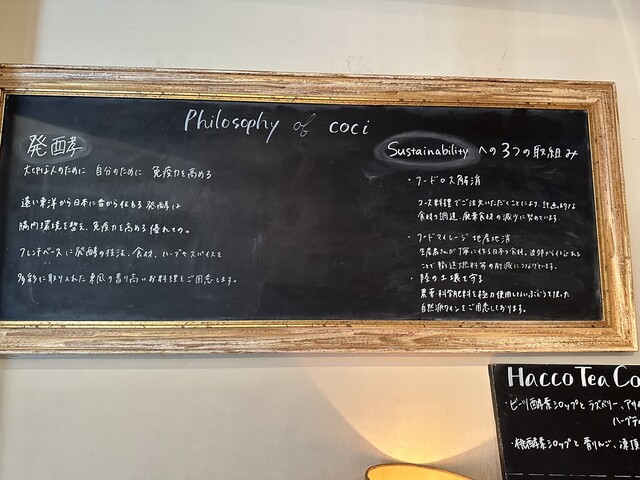 Philosophy of coci
発酵
大切な人のために 自分のために 免疫力を高める
遠い東洋から日本に昔から伝わる発酵は
腸内環境を整え、免疫力を高める優れもの。
フレンチベースに発酵の技法、食材、ハーブやスパイスを
多彩に取り入れた東風の香り高いお料理をご用意します。
Sustainability への3つの取組み
・フードロス解消
コース料理でご注文いただくことにより、計画的な
食材の調達、廃棄食材の減少に努めています。
・フードマイレージ 地産地消
生産者さんが丁寧に作る日本の食材。近郊から仕入れる
ことで輸送燃料等の削減につなげています。
・陸の土壌を守る
農薬・科学肥料を極力使用しないぶどうを使った
自然派ワインをご用意しております。
Hacco Tea Co
・ビーツ酵素シロップとラズベリー、
ハーブティ
・桃酵素シロップと青りんご、凍頂